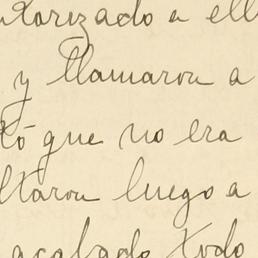 utorizado a ell
y llamaron a
tó que no era
ltaron luego a
acabado todo